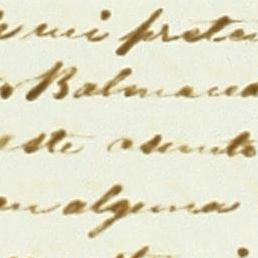 mi preten
Balmaceda
este asunto
en alguna